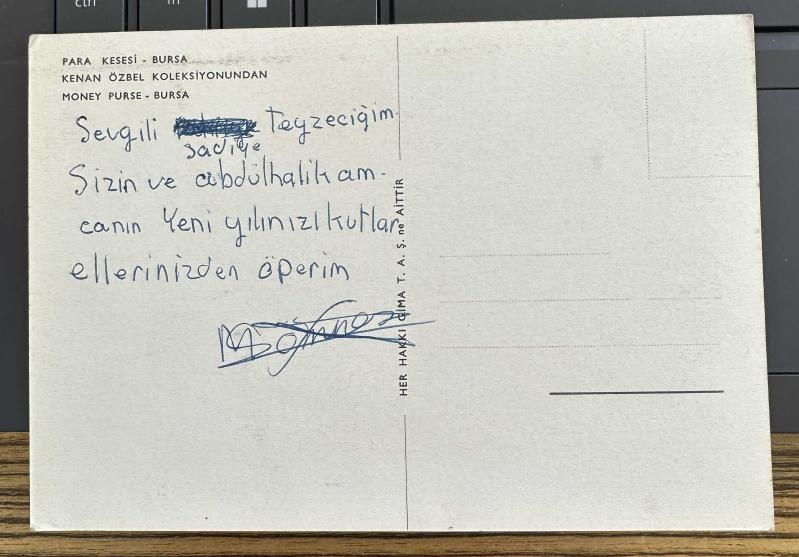 PARA KESESİ - BURSA
KENAN ÖZBEL KOLEKSİYONUNDAN
MONEY PURSE - BURSA
Sevgili Teyzeciğim
Sadiye
Sizin ve abdülhalik am-
canın Yeni yılınızı kutlar
ellerinizden öperim
HER HAKKI GİMA T. A. Ş. ne AİTTİR
ctrl